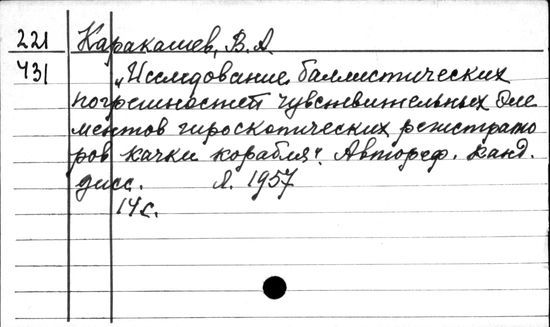 221 Каракашев, В.А.
431 „Исследование баллистических
погрешностей чувствительных эле
ментов гироскопических регистрато
ров качки корабля". Автореф. канд.
дисс. Л. 1957
14 с.